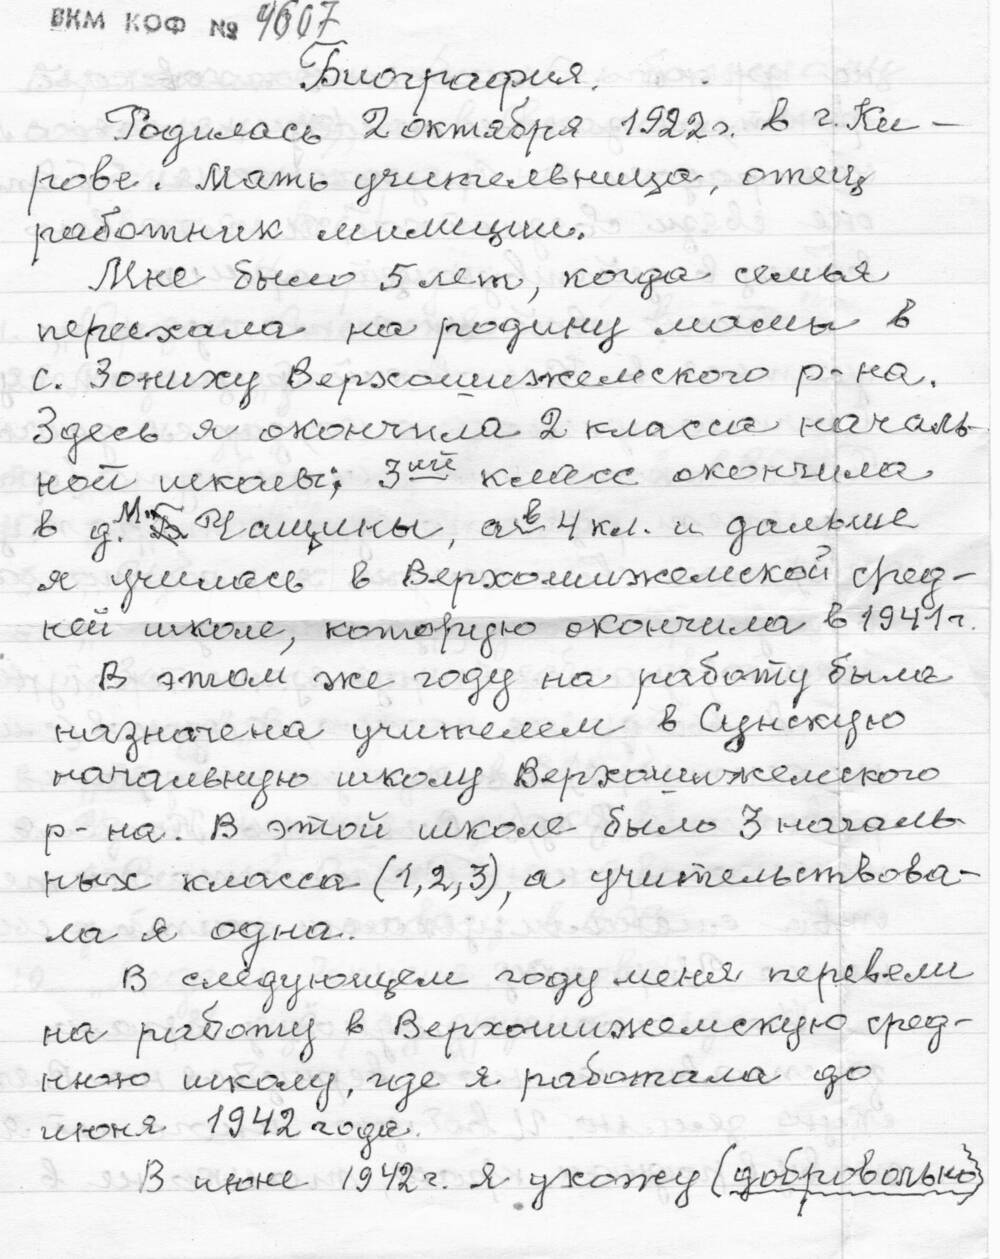 ВКМ КОФ № 4607
Биография.
Родилась 2 октября 1922 г. в г. Ки-
рове. Мать учительница, отец
работник милиции.
Мне было 5 лет, когда семья
переехала на родину мамы в
с. Зониху Верхошижемского р-на.
Здесь я окончила 2 класса началь-
ной школы; 3ий класс окончила
в д. М. Чащины, а в 4 кл. и дальше
я училась в Верхошижемской сред-
ней школе, которую окончила в 1941 г.
В этом же году на работу была
назначена учителем в Сунскую
начальную школу Верхошижемского
р-на. В этой школе было 3 началь-
ных класса (1,2,3), а учительствова-
ла я одна.
В следующем году меня перевели
на работу в Верхошижемскую сред-
нюю школу, где я работала до
июня 1942 года.
В июне 1942 г. я ухожу (добровольно)